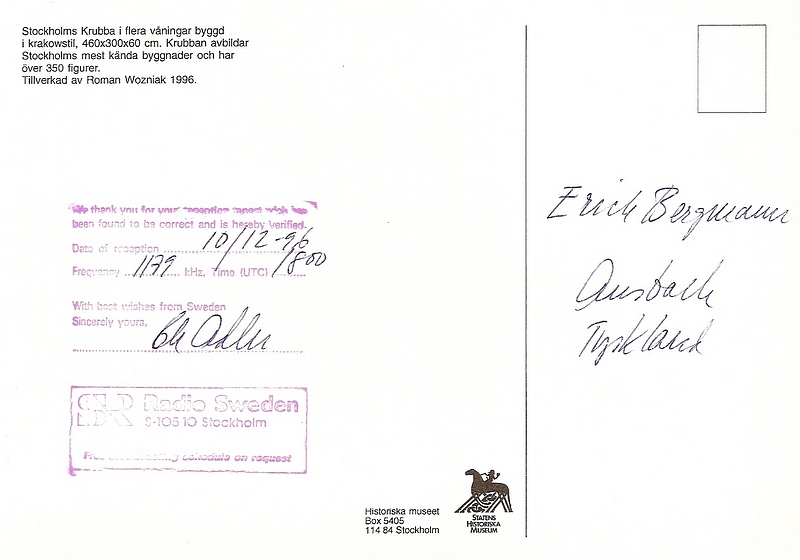 Stockholms Krubba i flera våningar byggd
i krakowstil, 460x300x60 cm. Krubban avbildar
Stockholms mest kända byggnader och har
över 350 figurer.
Tillverkad av Roman Wozniak 1996.
We thank you for your reception report wich has
been found to be correct and is hereby verified.
Date of reception 10/12-96
Frequency 1179 kHz, Time (UTC) 1800
With best wishes from Sweden
Sincerely yours,
SR Radio Sweden
S-105 10 Stockholm
Free broadcasting schedule on request
Historiska museet
Box 5405
114 84 Stockholm
STATENS
HISTORISKA
MUSEUM
Erich Bergmann
Ansbach
Tyskland